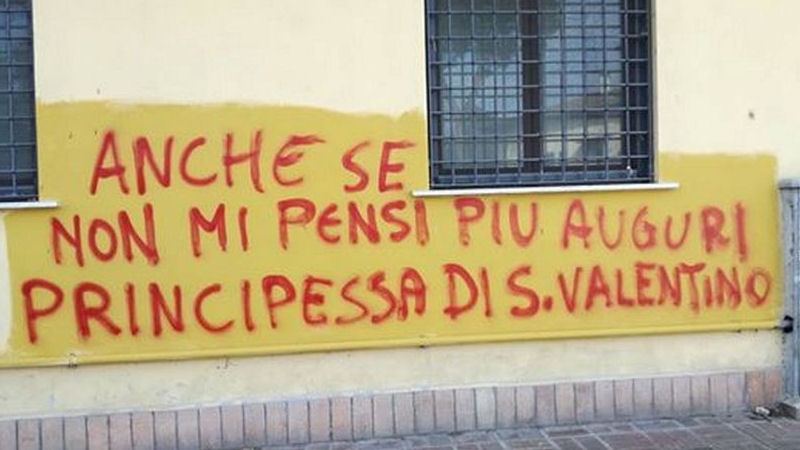 ANCHE SE
NON MI PENSI PIU AUGURI
PRINCIPESSA DI S. VALENTINO